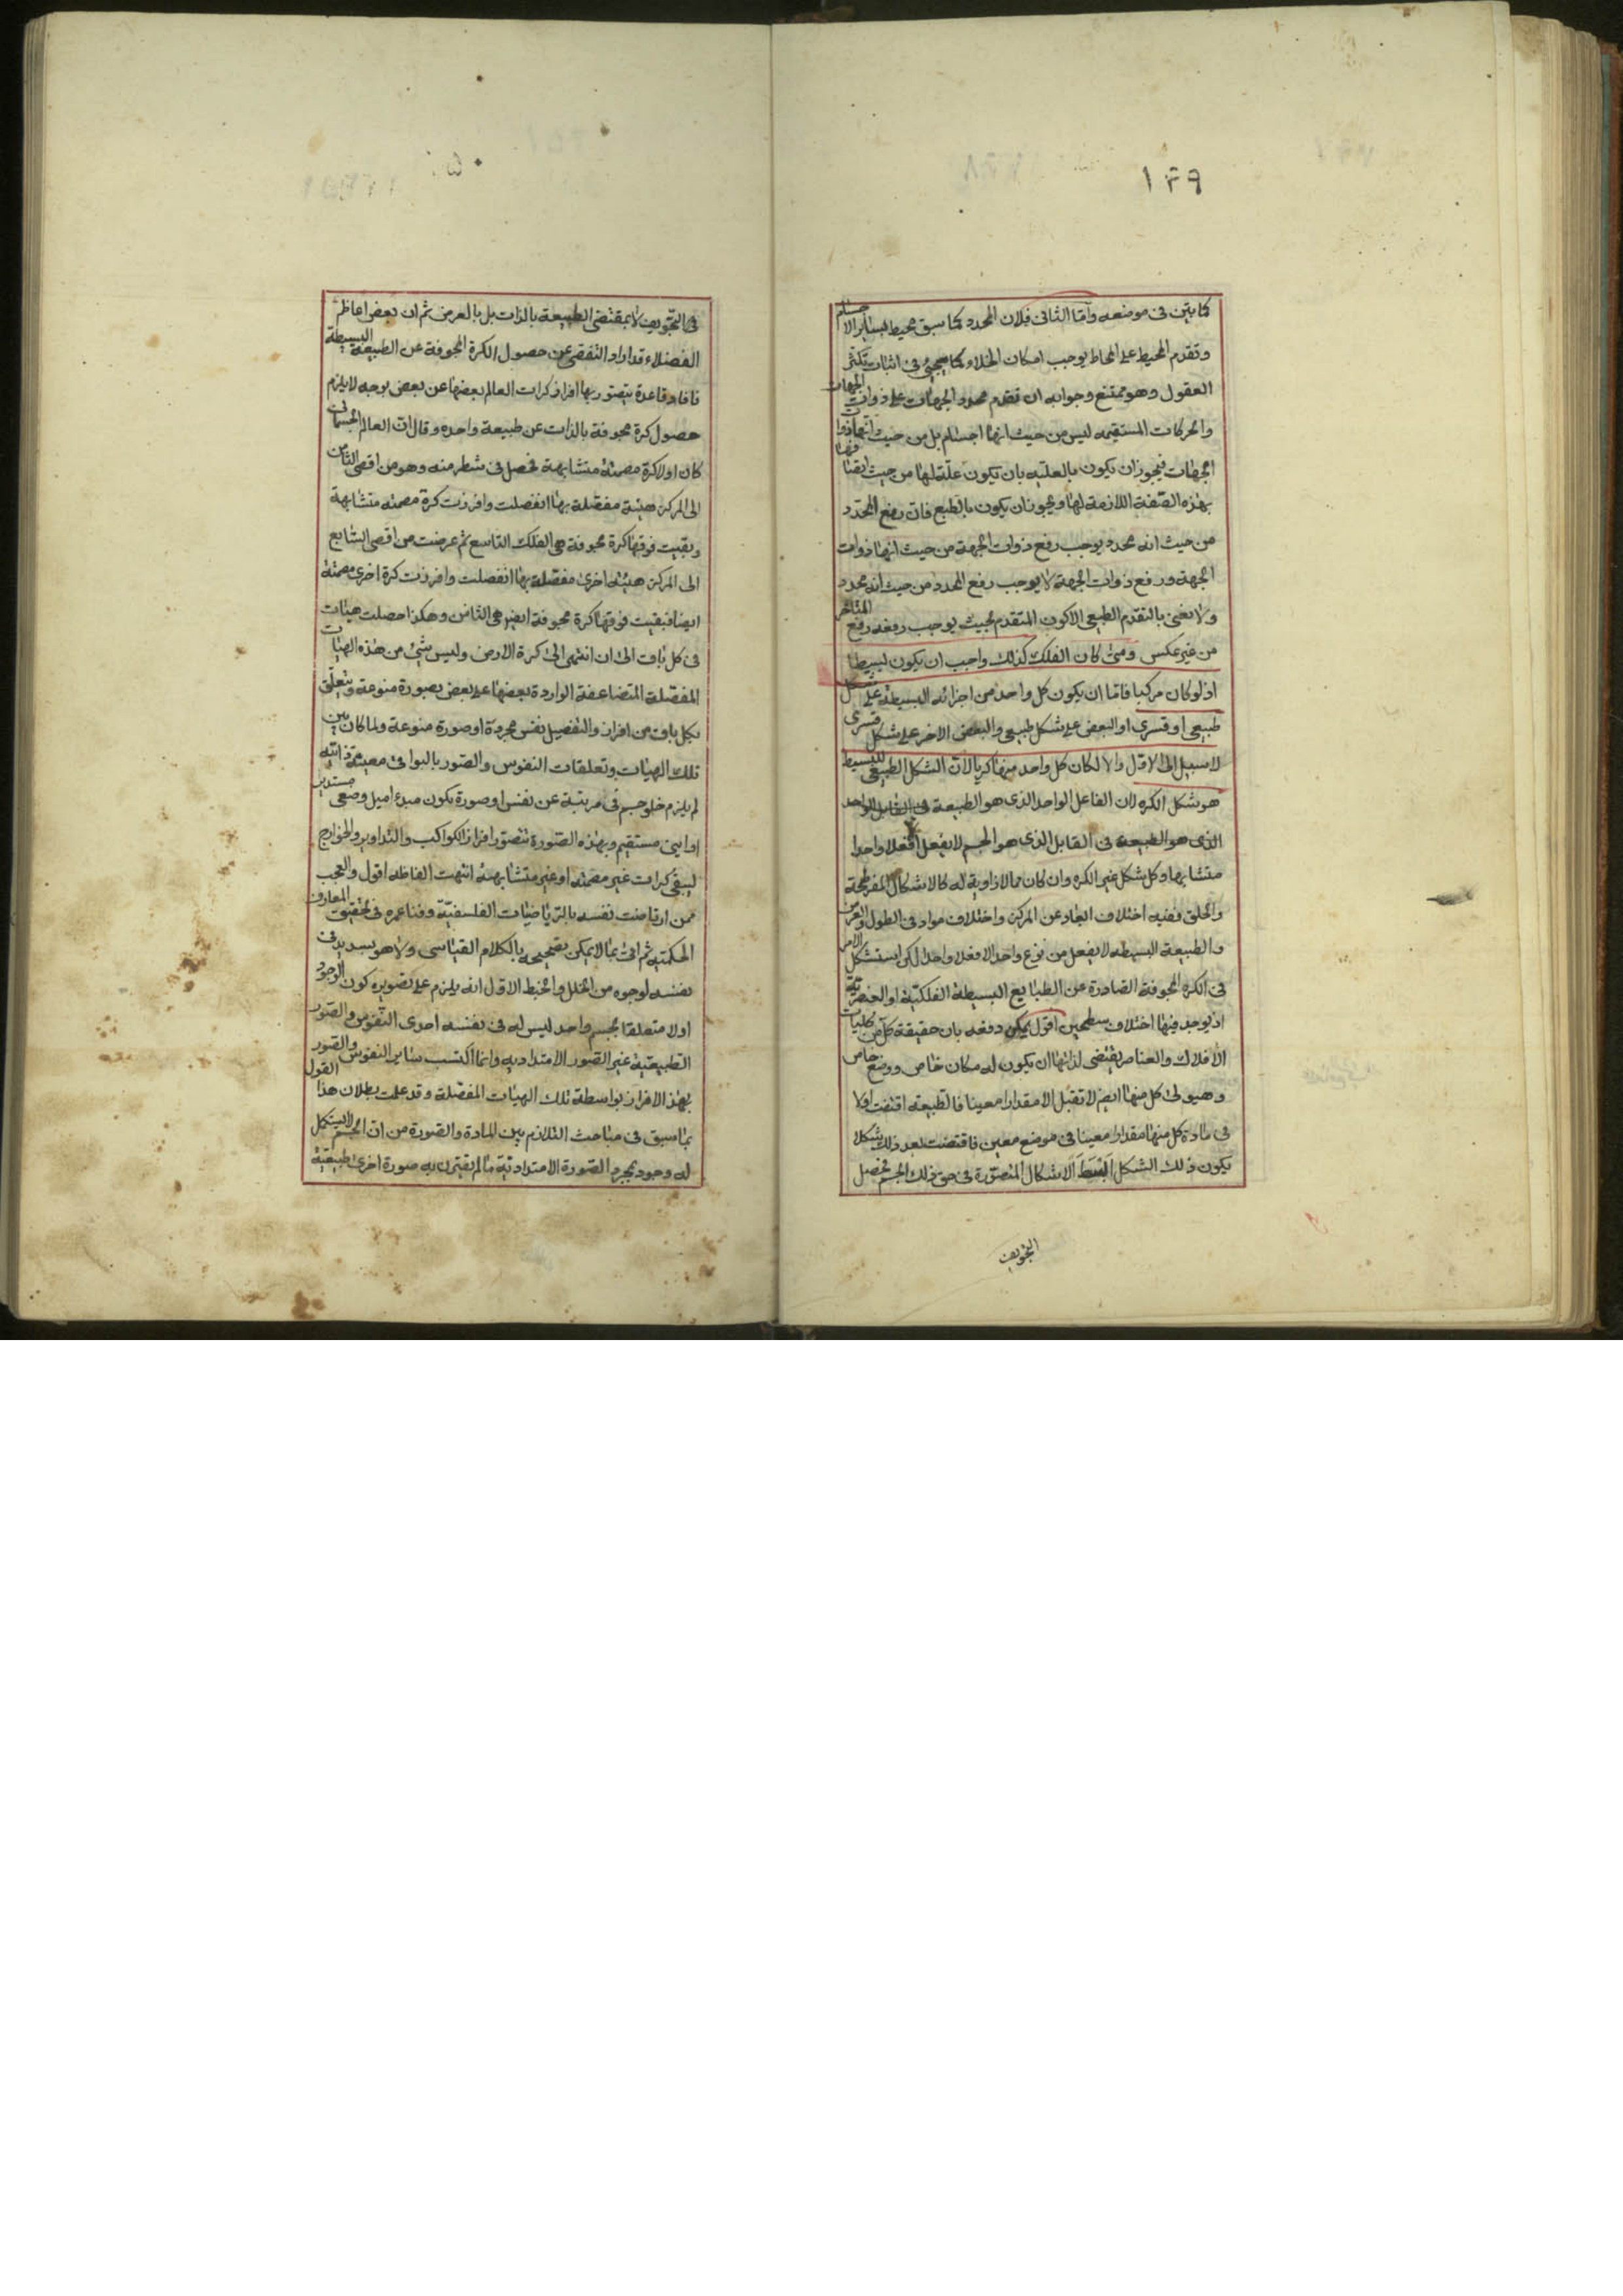 ١٤٩
كما بيّن فى موضعه وآمّا الثانى فلان المحدد كما سبق محيط بسائر الاجسام
وتقدم المحيط على المحاط يوجب امكان الخلاء كما سيجئ فى اثبات تكثّر
العقول وهو ممتنع وجوابه ان تقدم محدد الجهات على ذوات الجهات
والحركات المستقيمه ليس من حيث انها اجسام بل من حيث انها ذوات
الجهات فيجوز ان يكون بالعليّه بان يكون علّة لها من حيث اتصافها
بهذه الصّفة اللازمة لها ويجوز ان يكون بالطبع فانّ رفع المحدّد
من حيث انه محدد يوجب رفع ذوات الجهة من حيث انها ذوات
الجهة ورفع ذوات الجهة لا يوجب رفع المحدد من حيث انه محدد
ولا نعنى بالتقدّم الطبيعى الا كون المتقدم بحيث يوجب رفعه رفع المتاخر
من غير عكس ومتى كان الفلك كذلك واجب ان يكون بسيطا
اذ لو كان مركبا فامّا ان يكون كل واحد من اجزائه البسيطة على شكل
طبيعى او قسرى او البعض على شكل طبيعى والبعض الاخر على شكل قسرى
لا سبيل الى الاوّل والا لكان كل واحد منها كريا لانّ الشكل الطبيعى للبسيط
هو شكل الكره لان الفاعل الواحد الذى هو الطبيعة فى القابل الواحد
الذى هو الطبيعة فى القابل الذى هو الجسم لا يفعل الا فعلا واحدا
متشابها وكل شكل غير الكره وان كان مما لا زاوية له كالاشكال المفرطحة
والحلق ففيه اختلاف ابعاد عن المركز واختلاف مواد فى الطول والعرض
والطبيعة البسيطه لا يفعل من نوع واحد الا فعلا واحدا لكن استشكل الامر
فى الكره المجوفة الصّادرة عن الطبايع البسيطة الفلكيّة او العنصريّة
اذ يوجد فيها اختلاف سطحين اقول يمكن دفعه بان حقيقة كل من كليات
الافلاك والعناصر يقتضى لذاتها ان يكون له مكان خاص ووضع خاص
وهيولى كل منها ايضا لا تقبل الا مقدارا معينا فالطبيعة اقتضت اولا
فى مادة كل منها مقدارا معينا فى موضع معين فاقتضت بعد ذلك شكلا
يكون ذلك الشكل ابسط الاشكال المتصّورة فى حق ذلك الجسم فحصل
التجويف
٥٠
فى التجّويف لا بمقتضى الطبيعة بالذات بل بالعرض ثم ان بعض اعاظم
الفضلاء قد اراد التفصّى عن حصول الكرة المجوفة عن الطبيعة البسيطة
فافاد قاعدة يتصّور بها افراز كرات العالم بعضها عن بعض بوجه لا يلزم
حصول كرة مجوفة بالذات عن طبيعة واحده وقال انّ العالم الجسمانى
كان اولا كرة مصمتة متشابهة فحصل فى شطر منه وهو من اقصى الثامن
الى المركز هيئة مفصّلة بها انفصلت وافرزت كرة مصمته متشابهة
وبقيت فوقها كرة مجوفة هى الفلك التاسع ثم عرضت من اقصى السّابع
الى المركز هيئة اخرى مفصّلة بها انفصلت وافرزت كرة اخرى مصمتة
ايضا فبقيت فوقها كرة مجوفة ايضا هى الثامن وهكذا حصلت هيئات
فى كل باق الى ان انتهى الى كرة الارض وليس شئ من هذه الهيات
المفصّلة المتضاعفة الواردة بعضها على بعض بصورة منوعة ويتعلّق
بكل باق من افراز والتفصيل نفس مجردة او صورة منوعة ولما كان بين
تلك الهيات وتعلقات النفوس والصّور بالبواقى معيّة ذاتيّة
لم يلزم خلو جسم فى مرتبة عن نفس او صورة يكون مبدء اميل وضعى مستدير
او اينى مستقيم وبهذه الصّورة يتصوّر افراز الكواكب والتداوير والخوارج
ليبقى كرات غير مصمته او غير متشابهة انتهت الفاظه اقول والعجب
ممن ارتاضت نفسه بالرّياضيّات الفلسفيّة وفنا عمره فى تحقيق المعارف
الحكميّه ثم اتى بما لا يمكن تصحيحه بالكلام القياسى ولا هو سديد فى
نفسه لوجوه من الخلل والخبط الاوّل انه يلزم على تصويره كون الوجود
اولا متعلقا بجسم واحد ليس له فى نفسه احدى النّفوس والصّور
الطبيعيّة غير الصّور الامتداديه وانما اكتسب ساير النفوس والصّور
بهذا الافراز بواسطة تلك الهيات المفصّلة وقد علمت بطلان هذا القول
بما سبق فى مباحث التلازم بين المادة والصّورة من انّ الجسم لا يستكمل
له وجود بمجرد الصّورة الامتداديّة ما لم يقترن به صورة اخرى طبيعيّة